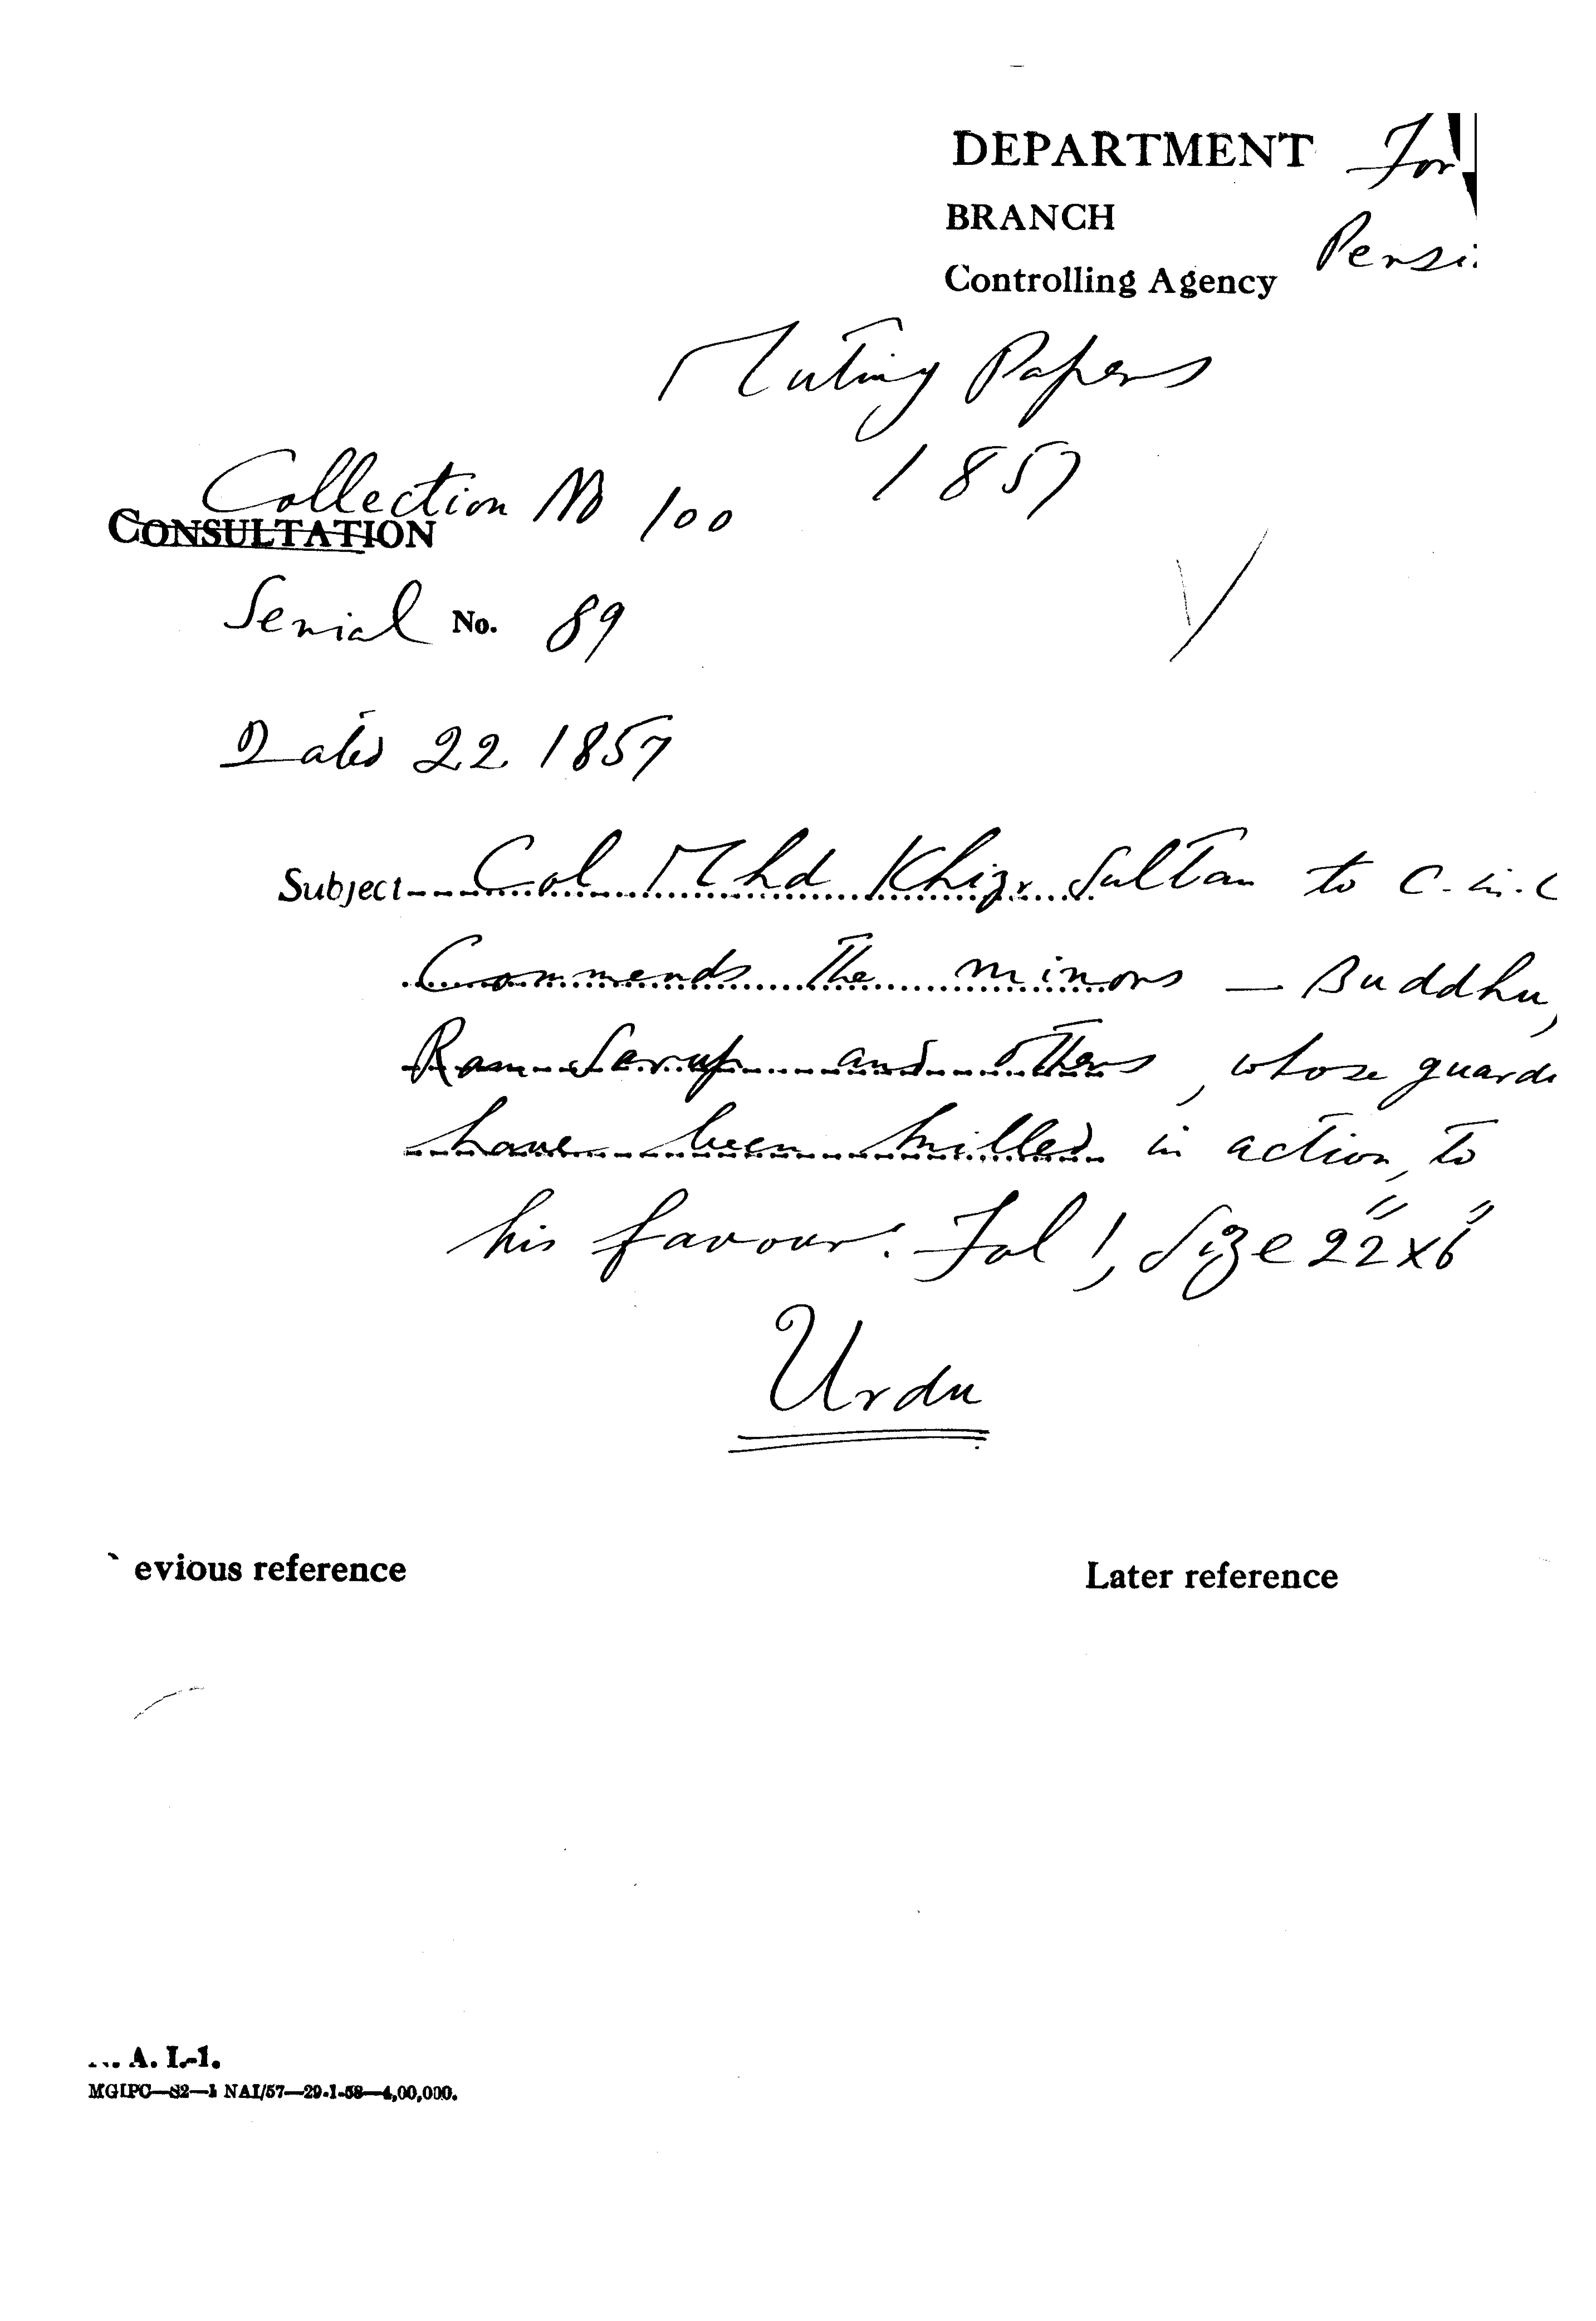 DEPARTMENT For
BRANCH
Persi
Controlling Agency
Mutiny Papers
1857
Collection No 100
CONSULTATION
Serial No. 89
Dated 22 1857
Subject Col Mhd Khizr Sultan to C-in-C
Commends the minors — Buddhu,
Ram Sarup and others, whose guardi
have been killed in action, to
his favour. Fol 1, Size 22"x6"
Urdu
evious reference
Later reference
. A. I.-1.
MGIPC—S2—1 NAI/57—29-1-58—4,00,000.